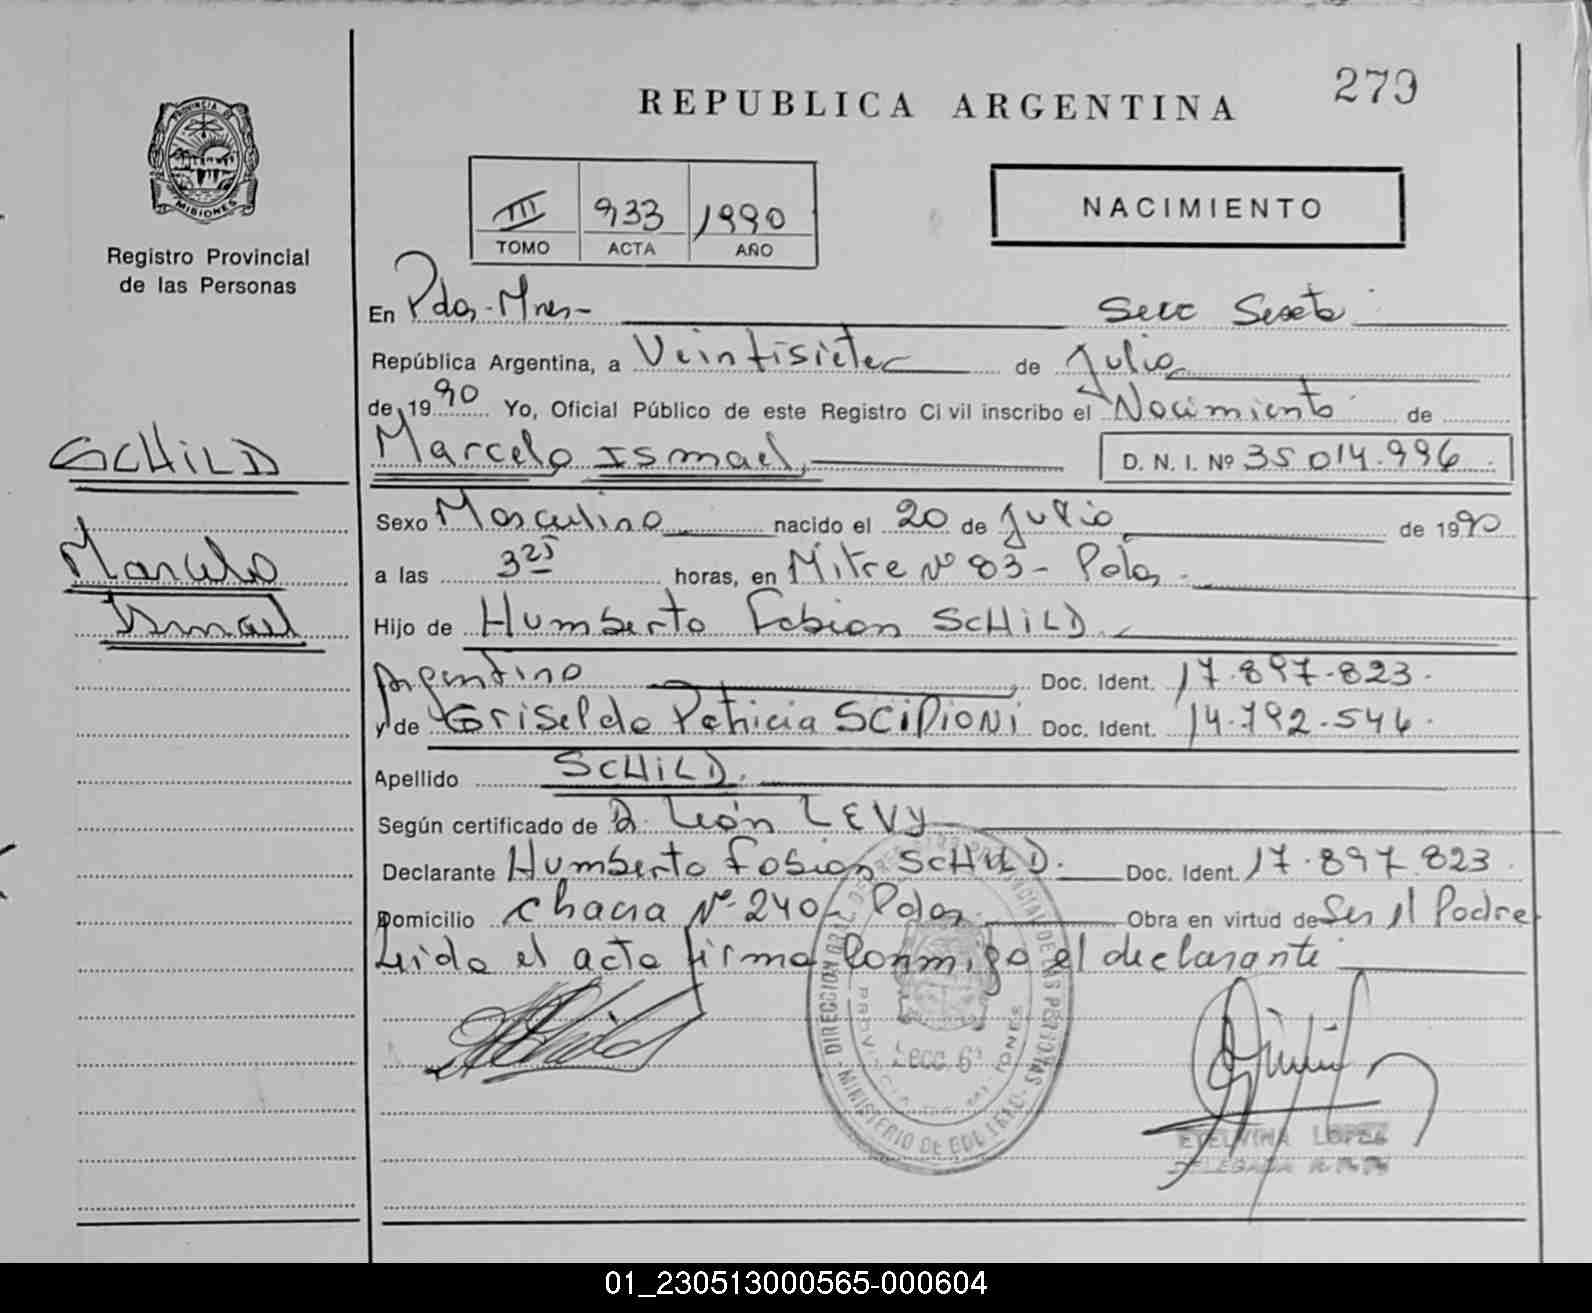 279
REPUBLICA ARGENTINA
PROVINCIA DE MISIONES
Registro Provincial
de las Personas
III 933 1990
TOMO ACTA AÑO
NACIMIENTO
En Pdas-Mnes- Secc Sexta
República Argentina, a Veintisiete de Julio
de 1990 Yo, Oficial Público de este Registro Civil inscribo el Nacimiento de
SCHILD
Marcelo Ismael, D. N. I. Nº 35.014.996.
Sexo Masculino nacido el 20 de Julio de 1990
Marcelo
a las 3 25 horas, en Mitre Nº 83 - Pdas.
Ismael
Hijo de Humberto Fabian SCHILD.
Argentino Doc. Ident. 17.897.823.
y de Griselda Patricia SCIPIONI Doc. Ident. 14.792.546.
Apellido SCHILD.
Según certificado de D. León LEVY
Declarante Humberto Fabian SCHILD. Doc. Ident. 17.897.823.
Domicilio Chacra Nº 240 - Pdas. Obra en virtud de Ser el Padre
Leida el acta firma conmigo el declarante
DIRECCION GRAL. DE REGISTRO PROVINCIAL DE LAS PERSONAS
MINISTERIO DE
PROVINCIA DE MISIONES
Secc 6ª
ETELVINA LOPEZ
DELEGADA
01_230513000565-000604